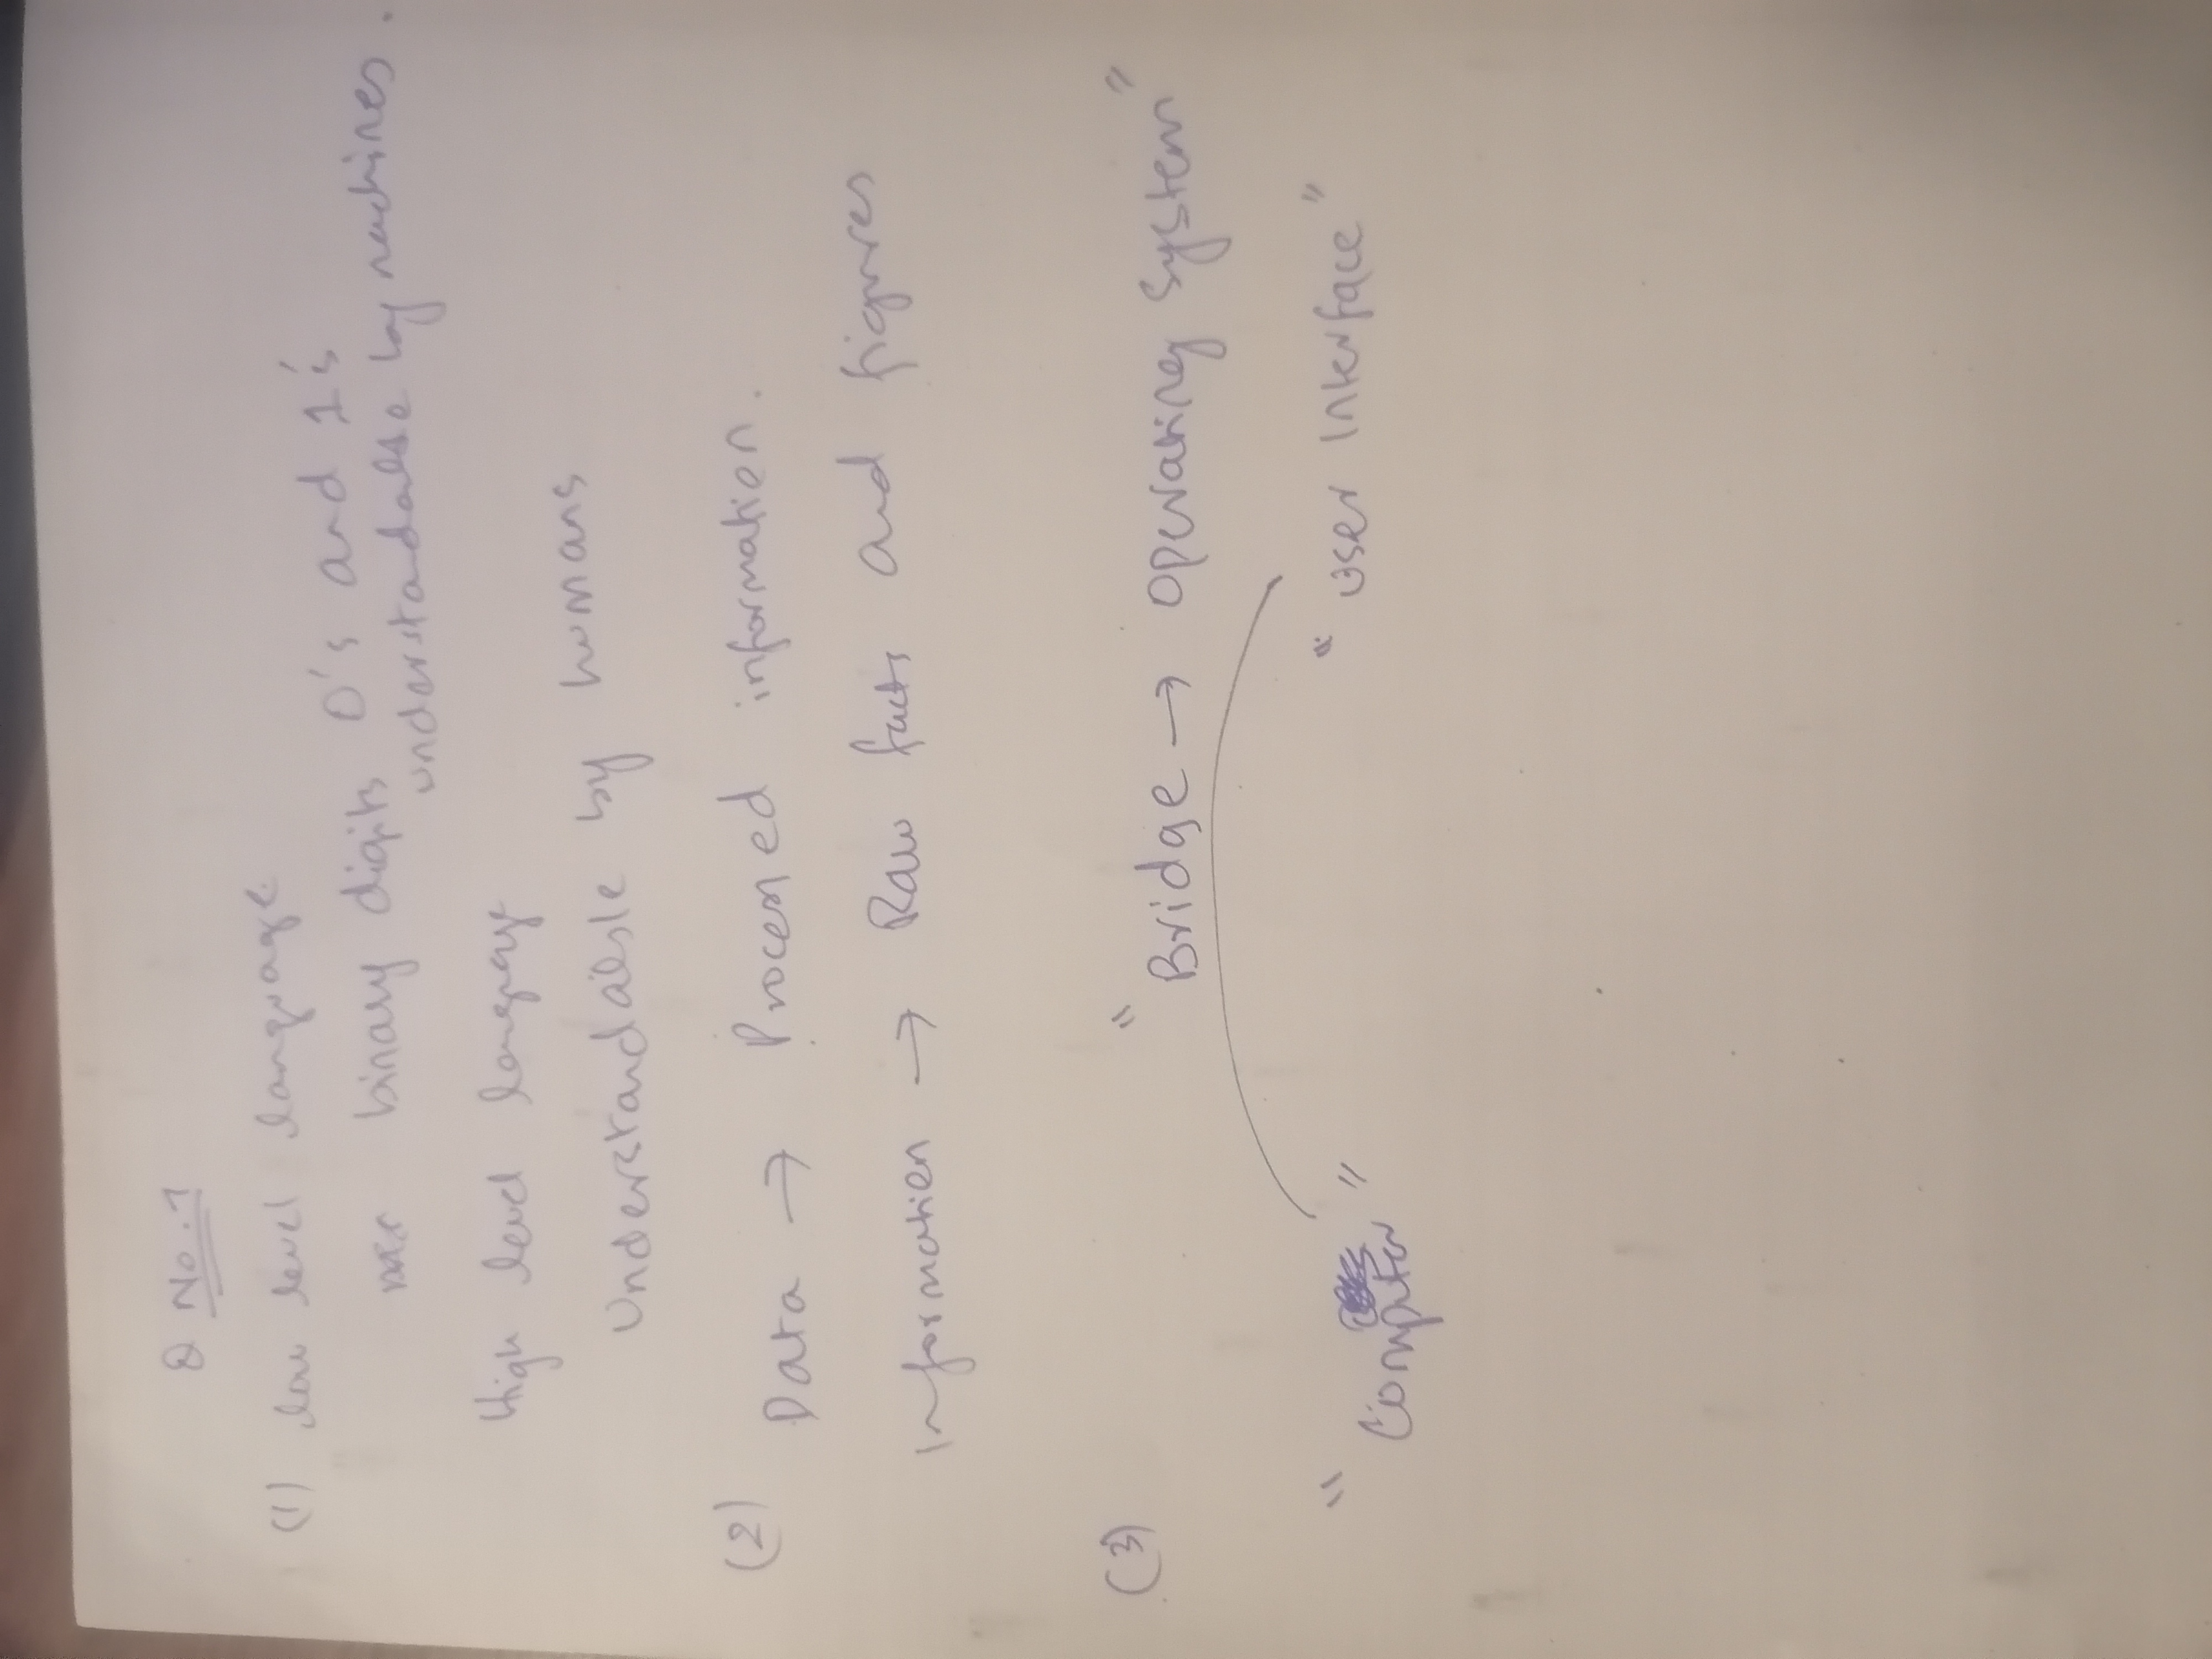 Q No. 1
(1) low level language
use binary digits 0's and 1's
understandable by machines.
High level languge
Understandable by humans
(2) Data → Processed information.
Information → Raw facts and figures
(3) " Bridge → Operating System "
" Computer " " User Interface "